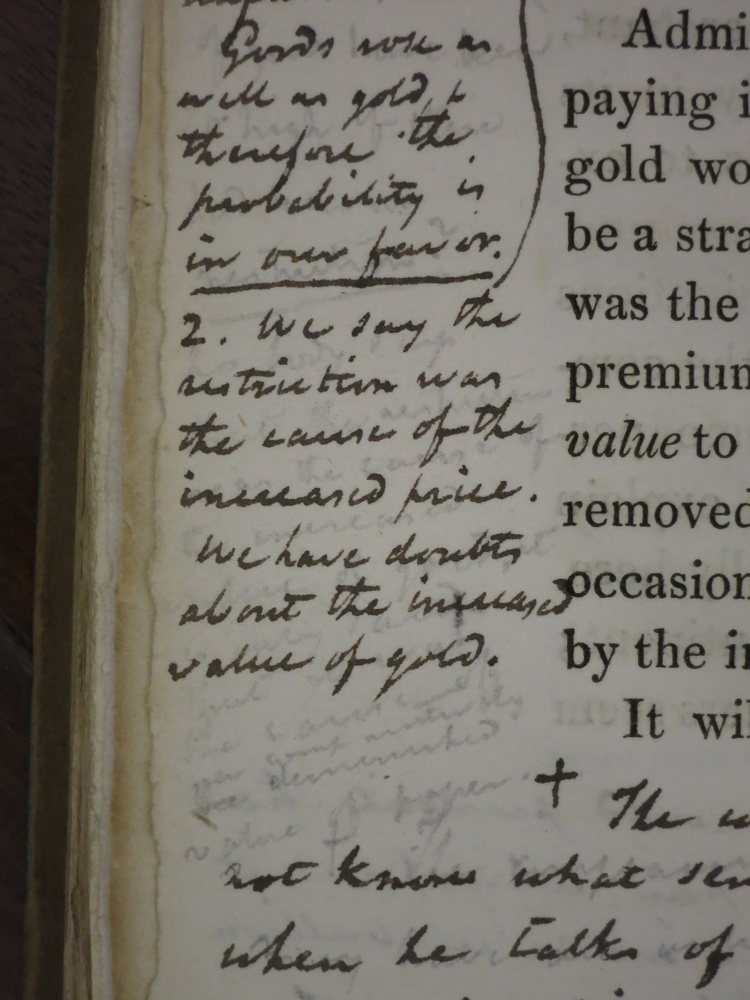 Goods rose as
well as gold, &
therefore the
probability is
in our favor.
2. We say the
restriction was
the cause of the
increased price.
We have doubts
about the increased
value of gold.
Admi
paying i
gold wo
be a stra
was the
premium
value to
removed
occasion
by the in
It wil
+ The
not know what sen
when he talks of